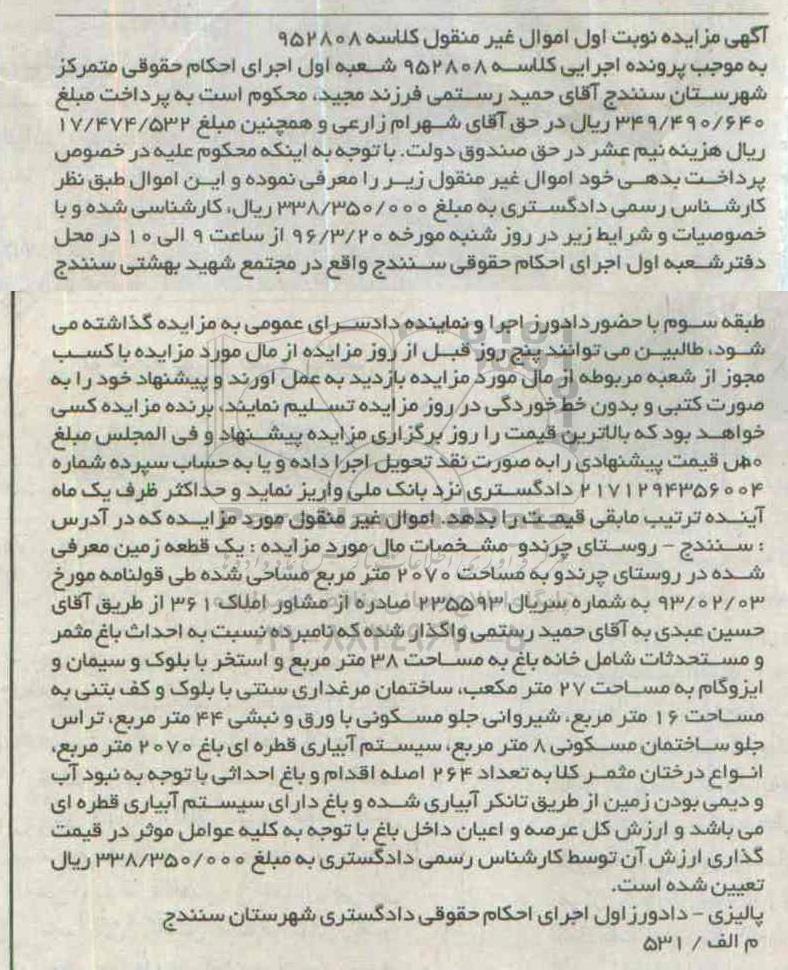 آگهی مزایده نوبت اول اموال غیر منقول کلاسه ۹۵۲۸۰۸
به موجب پرونده اجرایی کلاسه ۹۵۲۸۰۸ شعبه اول اجرای احکام حقوقی متمرکز
شهرستان سنندج آقای حمید رستمی فرزند مجید، محکوم است به پرداخت مبلغ
۳۴۹/۴۹۰/۶۴۰ ریال در حق آقای شهرام زارعی و همچنین مبلغ ۱۷/۴۷۴/۵۳۲
ریال هزینه نیم عشر در حق صندوق دولت. با توجه به اینکه محکوم علیه در خصوص
پرداخت بدهی خود اموال غیر منقول زیر را معرفی نموده و این اموال طبق نظر
کارشناس رسمی دادگستری به مبلغ ۳۳۸/۳۵۰/۰۰۰ ریال، کارشناسی شده و با
خصوصیات و شرایط زیر در روز شنبه مورخه ۹۶/۳/۲۰ از ساعت ۹ الی ۱۰ در محل
دفترشعبه اول اجرای احکام حقوقی سنندج واقع در مجتمع شهید بهشتی سنندج
طبقه سوم با حضور دادورز اجرا و نماینده دادسرای عمومی به مزایده گذاشته می
شود، طالبین می توانند پنج روز قبل از روز مزایده از مال مورد مزایده با کسب
مجوز از شعبه مربوطه از مال مورد مزایده بازدید به عمل آورند و پیشنهاد خود را به
صورت کتبی و بدون خط خوردگی در روز مزایده تسلیم نمایند، برنده مزایده کسی
خواهد بود که بالاترین قیمت را روز برگزاری مزایده پیشنهاد و فی المجلس مبلغ
قیمت پیشنهادی را به صورت نقد تحویل اجرا داده و یا به حساب سپرده شماره
۲۱۷۱۲۹۴۳۵۶۰۰۴ دادگستری نزد بانک ملی واریز نماید و حداکثر ظرف یک ماه
آینده ترتیب مابقی قیمت را بدهد. اموال غیر منقول مورد مزایده که در آدرس
: سنندج - روستای چرندو مشخصات مال مورد مزایده : یک قطعه زمین معرفی
شده در روستای چرندو به مساحت ۲۰۷۰ متر مربع مساحی شده طی قولنامه مورخ
۹۳/۰۲/۰۳ به شماره سریال ۲۳۵۵۹۳ صادره از مشاور املاک ۳۶۱ از طریق آقای
حسین عبدی به آقای حمید رستمی واگذار شده که نامبرده نسبت به احداث باغ مثمر
و مستحدثات شامل خانه باغ به مساحت ۳۸ متر مربع و استخر با بلوک و سیمان و
ایزوگام به مساحت ۲۷ متر مکعب، ساختمان مرغداری سنتی با بلوک و کف بتنی به
مساحت ۱۶ متر مربع، شیروانی جلو مسکونی با ورق و نبشی ۴۴ متر مربع، تراس
جلو ساختمان مسکونی ۸ متر مربع، سیستم آبیاری قطره ای باغ ۲۰۷۰ متر مربع،
انواع درختان مثمر کلا به تعداد ۲۶۴ اصله اقدام و باغ احداثی با توجه به نبود آب
و دیمی بودن زمین از طریق تانکر آبیاری شده و باغ دارای سیستم آبیاری قطره ای
می باشد و ارزش کل عرصه و اعیان داخل باغ با توجه به کلیه عوامل موثر در قیمت
گذاری ارزش آن توسط کارشناس رسمی دادگستری به مبلغ ۳۳۸/۳۵۰/۰۰۰ ریال
تعیین شده است.
پالیزی - دادورز اول اجرای احکام حقوقی دادگستری شهرستان سنندج
م الف / ۵۳۱